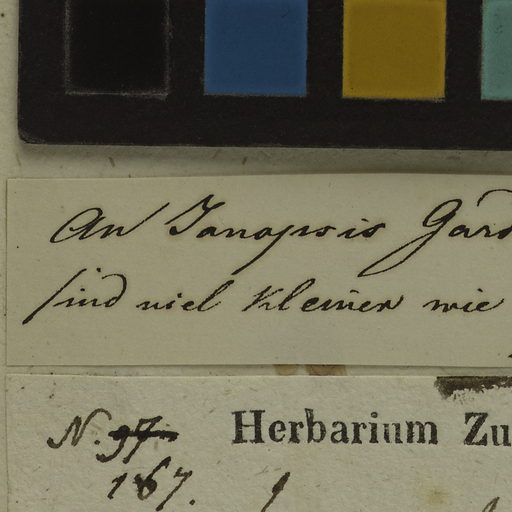 An Janopsis Gard
sind viel kleiner wie
Herbarium Zu
N. 97
167.